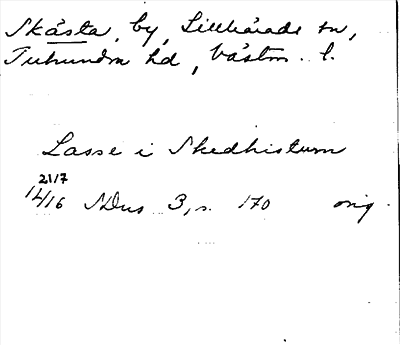 Skåsta, by, Lillhärads sn,
Tuhundra hd, Västm. l.
Lasse i Skedhistum
21/7
1416 SDns 3, s. 170 orig.